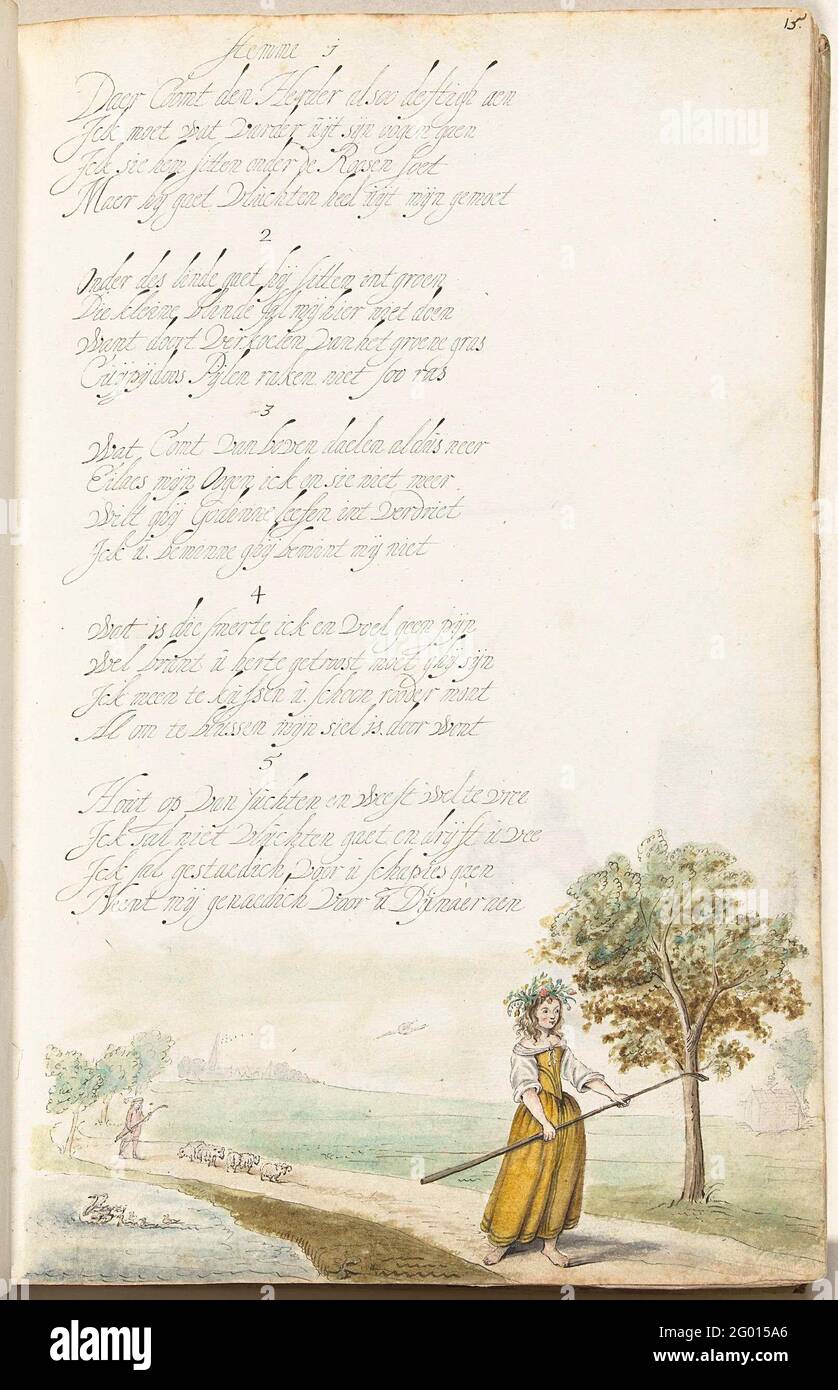 15.
Stemme 1
Daer Comt den Heyder alsoo deftigh aen
Ick moet wat varder uijt sijn oogen gaen
Ick sie hem sitten onder de Roosen soet
Maer hij gaet Vluchten heel uijt mijn gemoet
2
Onder des linde gaet hij sitten int groen
Die kleine blinde sal mij hier niet doen
Want doort verkoelen van het groene gras
Cuijpijdoos Pijlen raken niet soo ras
3
Wat Comt van boven daelen aldus neer
Eilaes mijn Oogen ick en sie niet meer
Wilt ghij Godinne leesen int verdriet
Ick u. beminne ghij bemint mij niet
4
Wat is die smerte ick en voel geen pijn
Wel brant u herte getroost moet ghij sijn
Ick meen te kussen u. schoon rooder mont
Al om te blussen mijn siel is door wont
5
Hout op van suchten en weest wel te vree
Ick sal niet vluchten gaet en drijft u vee
Ick sal gestaedich voor u schapies gaen
Neemt mij genaedich voor u
alamy
alamy
Image ID: 2G015A6
www.alamy.com